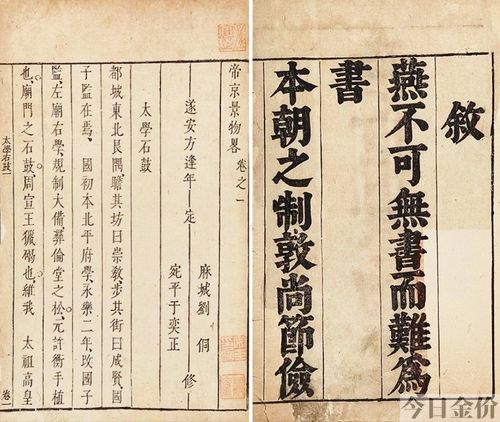 敘
燕不可無書而難爲
書
本朝之制敦尚節儉
帝京景物畧 卷之一
遂安方逢年 定
麻城劉 侗 修
宛平于奕正
太學石鼓
都城東北艮隅瞻其坊曰崇教步其街曰成賢國
子監在焉、國初本北平府學、永樂二年、改國子
監、左廟右學、規制大備、彝倫堂之松、元許衡手植
也、廟門之石鼓、周宣王獵碣也、維我 太祖高皇
太學石鼓一
卷一
今日金价